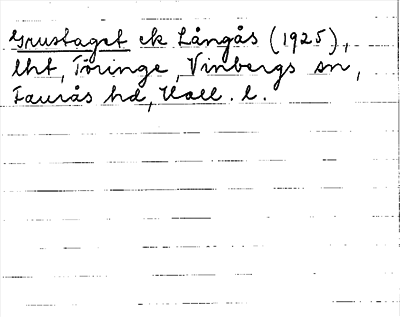 Grustaget ek Långås (1925),
lht, Töringe, Vinbergs sn,
Faurås hd, Hall. l.